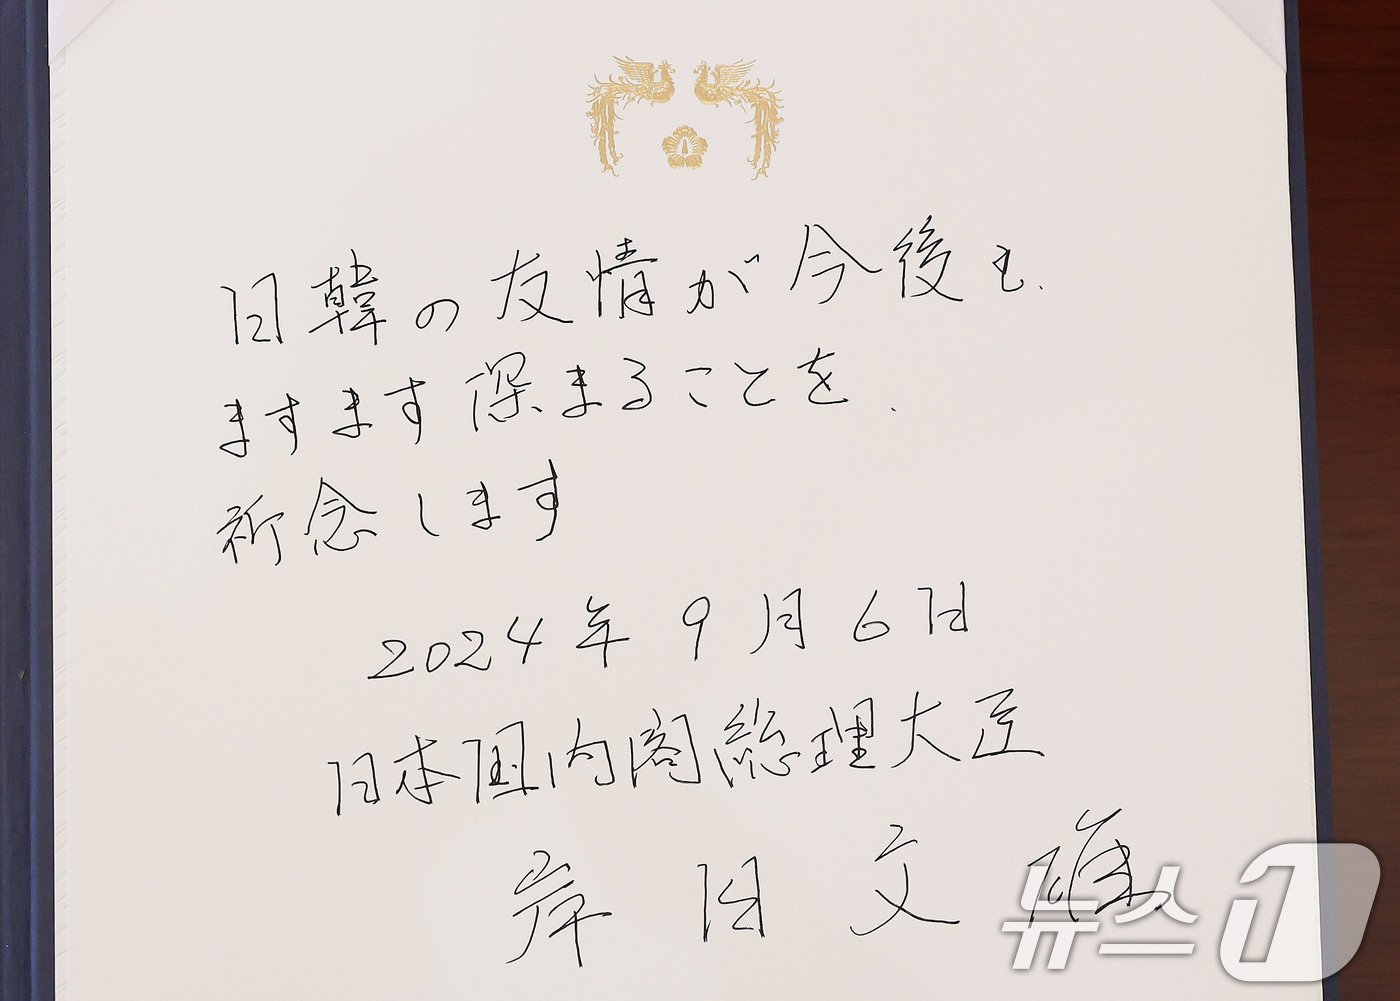 日韓の友情が今後も
ますます深まることを
祈念します
2024年9月6日
日本国内閣総理大臣
岸田文雄
뉴스1